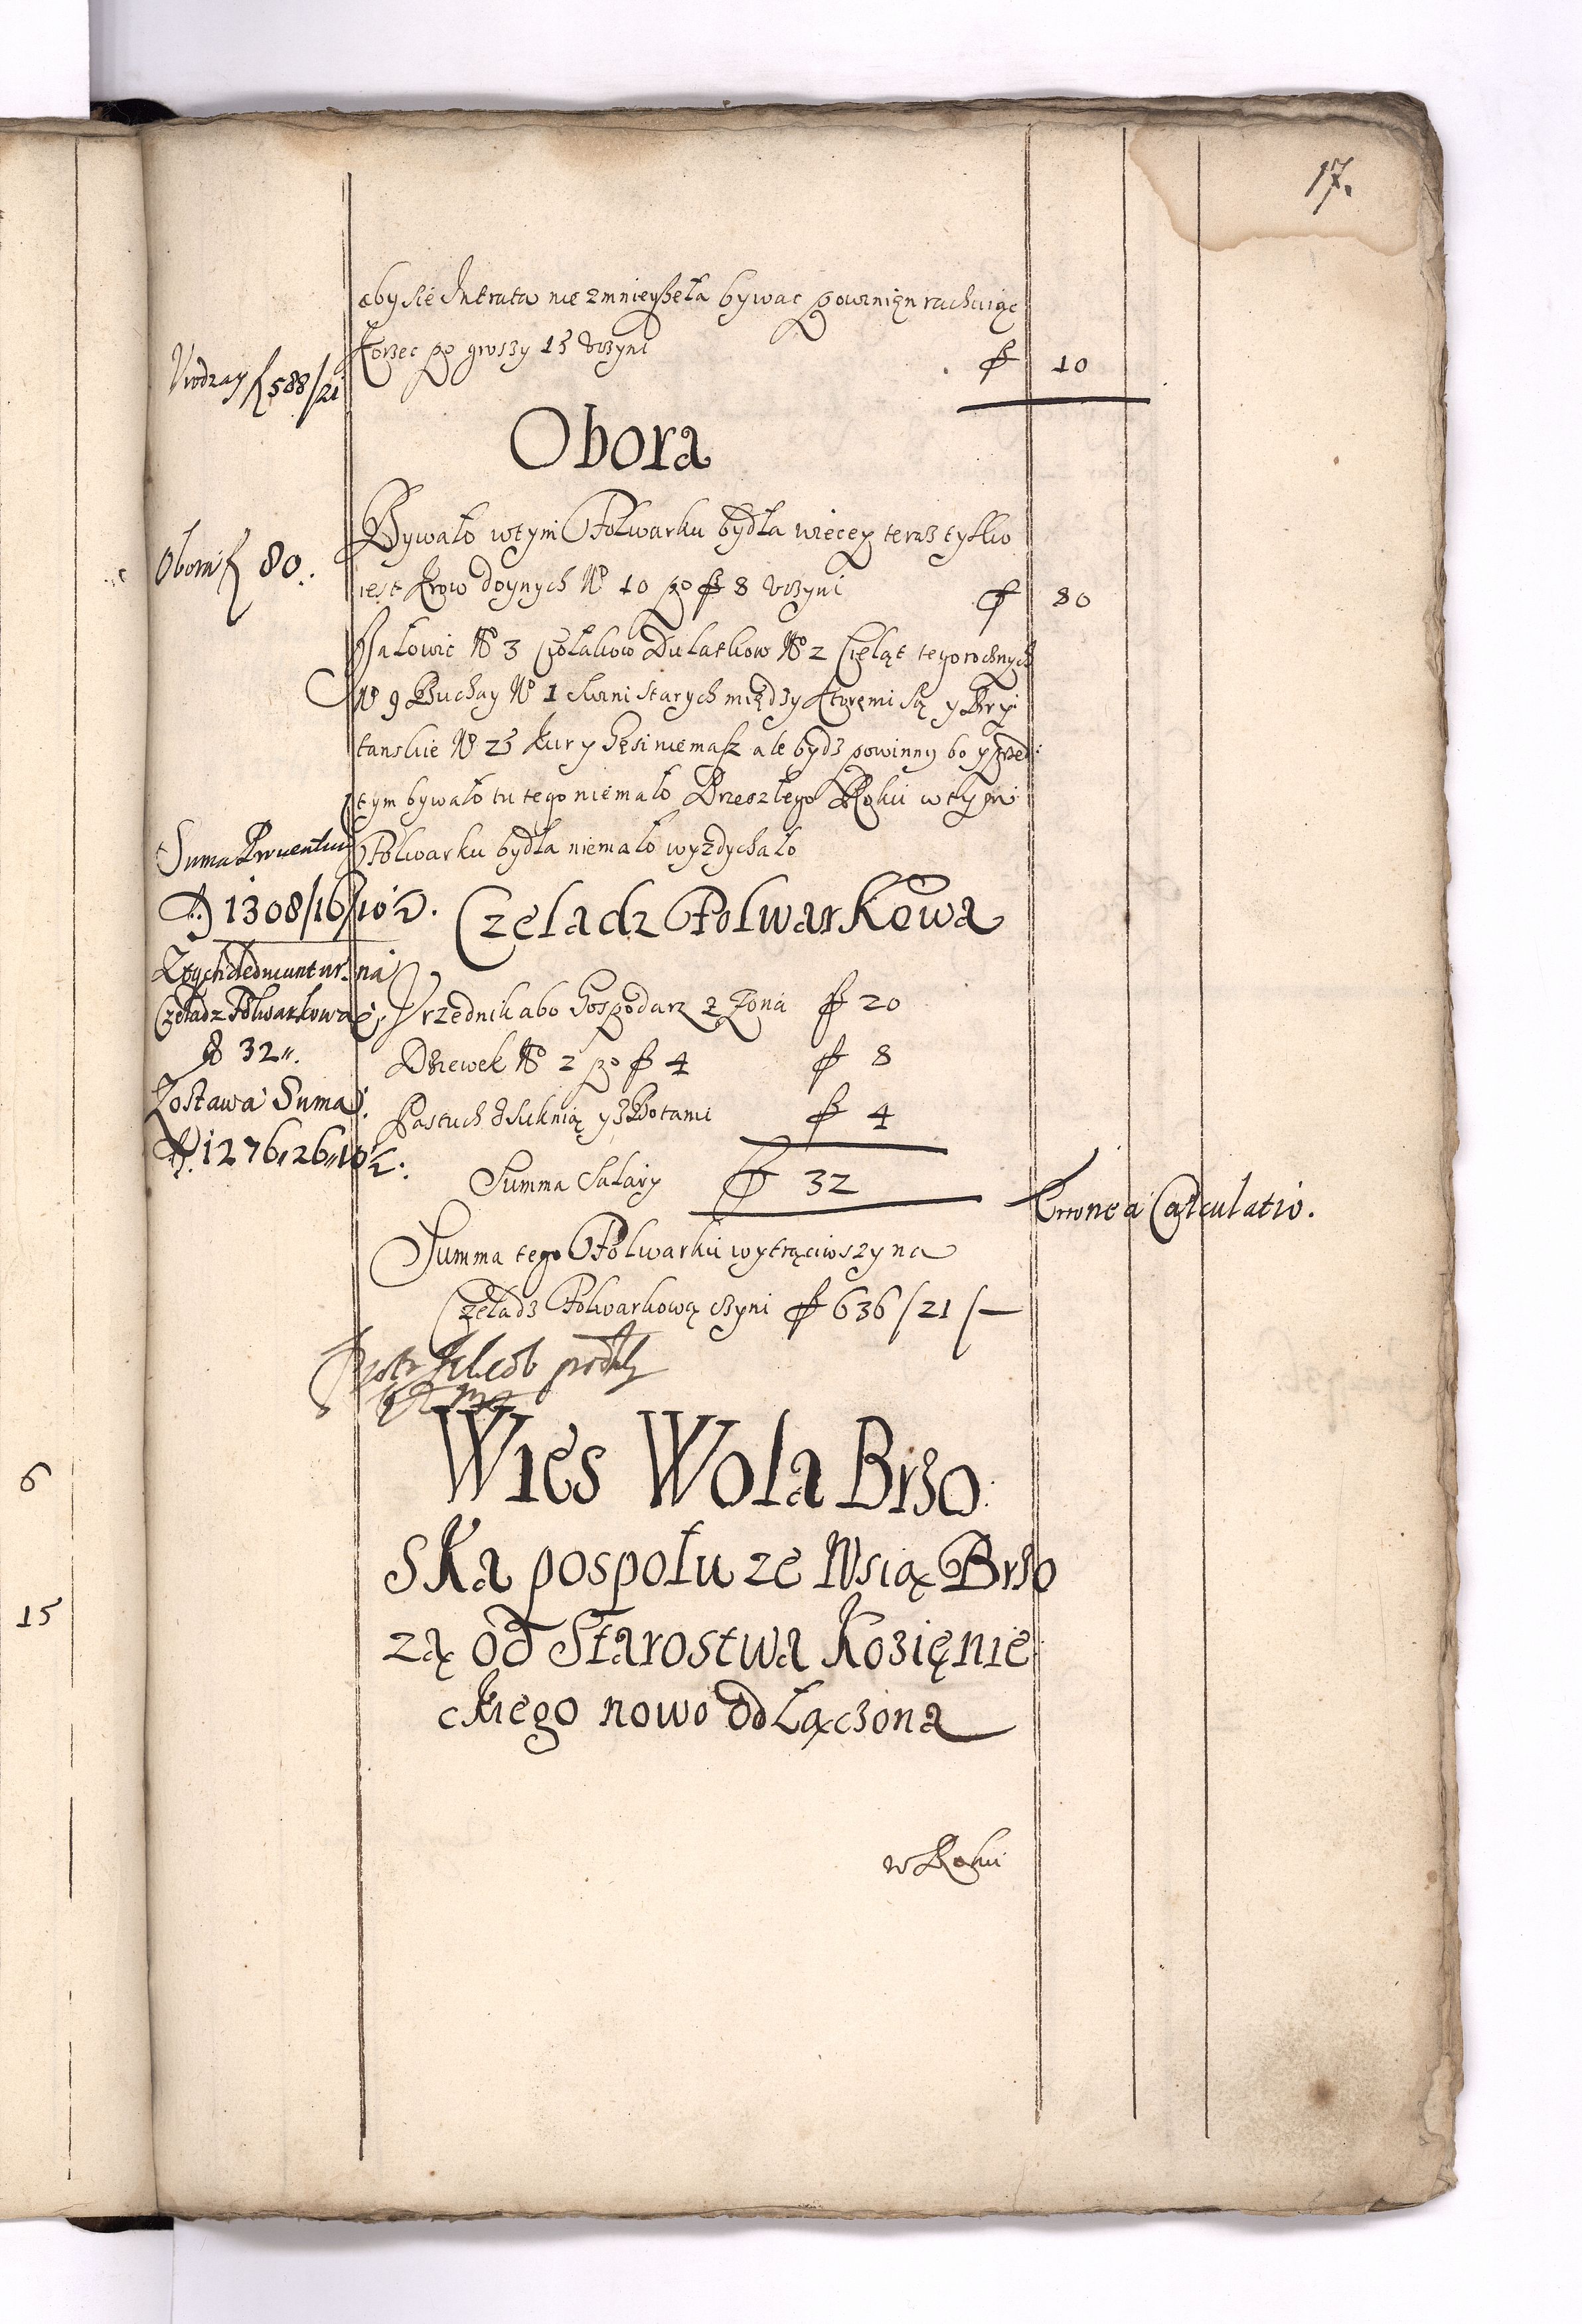 17.
aby się Intrata nie zmnieyszeła bywac powinien rachuiąc
Korzec po groszy 15 vczyni f 10
Vrodzay f 588/21
Obora
Bywało w tym Folwarku bydła wiecey teraz tylko
iest Krow doynych No 10 po f 8 vczyni f 80
Obora f 80.
Jałowic No 3 Ciołakow Dulatkow No 2 Cieląt tegorocznych
No 9 Buchay No 1 Swini starych między ktoremi są y Bry
tanskie No 25 Kur y Gęsi niemasz ale bydz powinny bo y przed
tym bywało tu tego niemało Przeszłego Roku w tym
Folwarku bydła niemało wyzdychało
Suma Prouentuu
f 1308/16/10½.
Czeladz Folwarkowa
Z tych deducuntur na
Czeladz Folwarkową
f 32.
Zostawa Suma
f 1276,26,10½.
Vrzednik abo Gospodarz z Zoną f 20
Dziewek No 2 po f 4 f 8
Pastuch z Suknią y z Botami f 4
Summa Salary f 32
Erronea Calculatio.
Summa tego Folwarku wytrąciwszy na
Czeladz Folwarkową czyni f 636/21/—
Wies Wola Brzo
ska pospołu ze Wsią Brzo
zą od Starostwa Kozięnie
ckiego nowo odłączona
w Roku
6
15